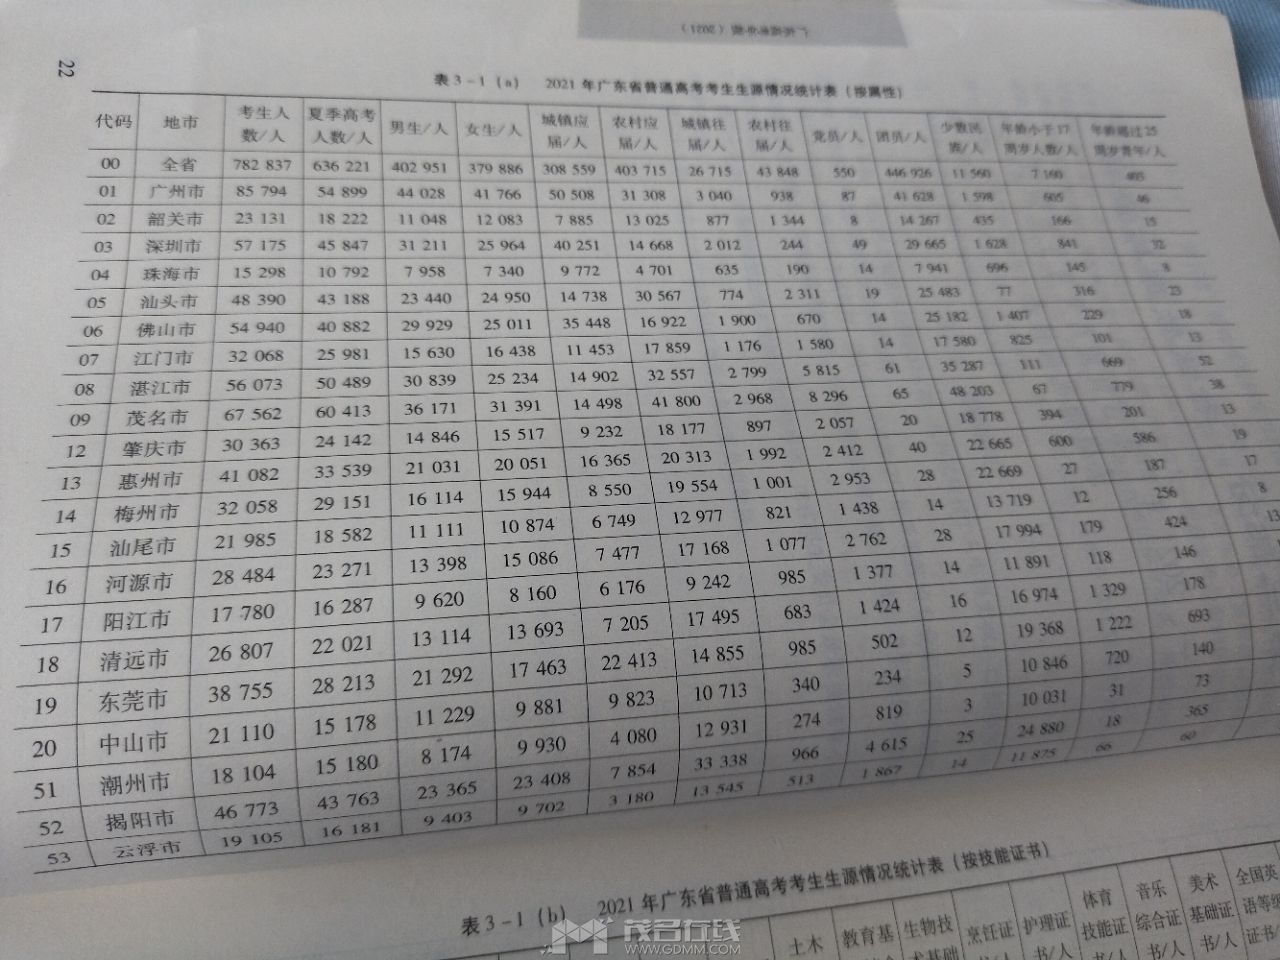 22
表3-1(a) 2021年广东省普通高考考生生源情况统计表(按属性)
代码 地市 考生人数/人 夏季高考人数/人 男生/人 女生/人 城镇应届/人 农村应届/人 城镇往届/人 农村往届/人 党员/人 团员/人 少数民族/人 年龄小于17周岁人数/人 年龄超过25周岁青年/人
00 全省 782 837 636 221 402 951 379 886 308 559 403 715 26 715 43 848 550 446 926 11 560 7 160
01 广州市 85 794 54 899 44 028 41 766 50 508 31 308 3 040 938 87 41 628 1 598 605 46
02 韶关市 23 131 18 222 11 048 12 083 7 885 13 025 877 1 344 8 14 267 435 166 15
03 深圳市 57 175 45 847 31 211 25 964 40 251 14 668 2 012 244 49 29 665 1 628 841 32
04 珠海市 15 298 10 792 7 958 7 340 9 772 4 701 635 190 14 7 941 696 145
05 汕头市 48 390 43 188 23 440 24 950 14 738 30 567 774 2 311 19 25 483 77 316 23
06 佛山市 54 940 40 882 29 929 25 011 35 448 16 922 1 900 670 14 25 182 1 407 229 18
07 江门市 32 068 25 981 15 630 16 438 11 453 17 859 1 176 1 580 14 17 580 825 101 13
08 湛江市 56 073 50 489 30 839 25 234 14 902 32 557 2 799 5 815 61 35 287 111 669 52
09 茂名市 67 562 60 413 36 171 31 391 14 498 41 800 2 968 8 296 65 48 203 67 779 38
12 肇庆市 30 363 24 142 14 846 15 517 9 232 18 177 897 2 057 20 18 778 394 201 13
13 惠州市 41 082 33 539 21 031 20 051 16 365 20 313 1 992 2 412 40 22 665 600 586 19
14 梅州市 32 058 29 151 16 114 15 944 8 550 19 554 1 001 2 953 28 22 669 27 187 17
15 汕尾市 21 985 18 582 11 111 10 874 6 749 12 977 821 1 438 14 13 719 12 256 8
16 河源市 28 484 23 271 13 398 15 086 7 477 17 168 1 077 2 762 28 17 994 179 424 13
17 阳江市 17 780 16 287 9 620 8 160 6 176 9 242 985 1 377 14 11 891 118 146
18 清远市 26 807 22 021 13 114 13 693 7 205 17 495 683 1 424 16 16 974 1 329 178
19 东莞市 38 755 28 213 21 292 17 463 22 413 14 855 985 502 12 19 368 1 222 693
20 中山市 21 110 15 178 11 229 9 881 9 823 10 713 340 234 5 10 846 720 140
51 潮州市 18 104 15 180 8 174 9 930 4 080 12 931 274 819 3 10 031 31 73
52 揭阳市 46 773 43 763 23 365 23 408 7 854 33 338 966 4 615 25 24 880 18 365
53 云浮市 19 105 16 181 9 403 9 702 3 180 13 545 513 1 867 14 11 875 66 60
表3-1(b) 2021年广东省普通高考考生生源情况统计表(按技能证书)
土木 教育基 生物技 烹饪证 护理证 体育 音乐 美术 全国英
术基础 书/人 书/人 技能证 综合证 基础证 语等级
书/人 书/人 书/人 证书/
茂名在线
WWW.GDMM.COM